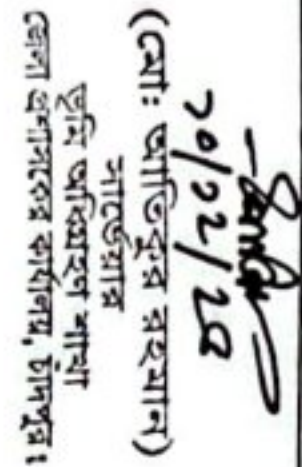 (মোঃ আতিকুর রহমান)
সার্ভেয়ার
ভূমি অধিগ্রহণ শাখা
জেলা প্রশাসকের কার্যালয়, চাঁদপুর।